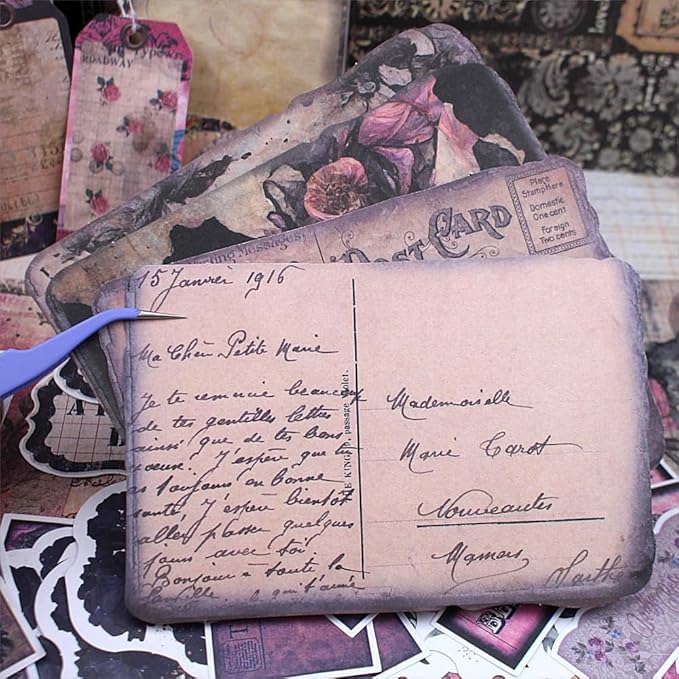 ROADWAY
Place
Stamp Here
Domestic
One cent
Foreign
Two cents
POST CARD
15 Janvier 1916
Ma Chère Petite Marie
Je te remercie beaucoup
de tes gentilles lettres
ainsi que de tes bons
voeux. J'espère que tu
es toujours en bonne
santé J'espère bientôt
aller passer quelques
jours avec toi
Bonjour à toute la
famille qui t'aime
passage Violet.
Mademoiselle
Marie Carot
Nouveautés
Mamers
Sarthe